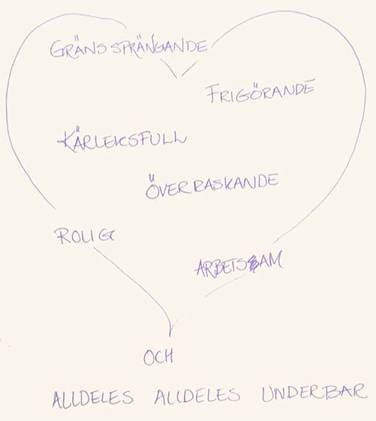 GRÄNSSPRÄNGANDE
FRIGÖRANDE
KÄRLEKSFULL
ÖVERRASKANDE
ROLIG
ARBETSSAM
OCH
ALLDELES ALLDELES UNDERBAR